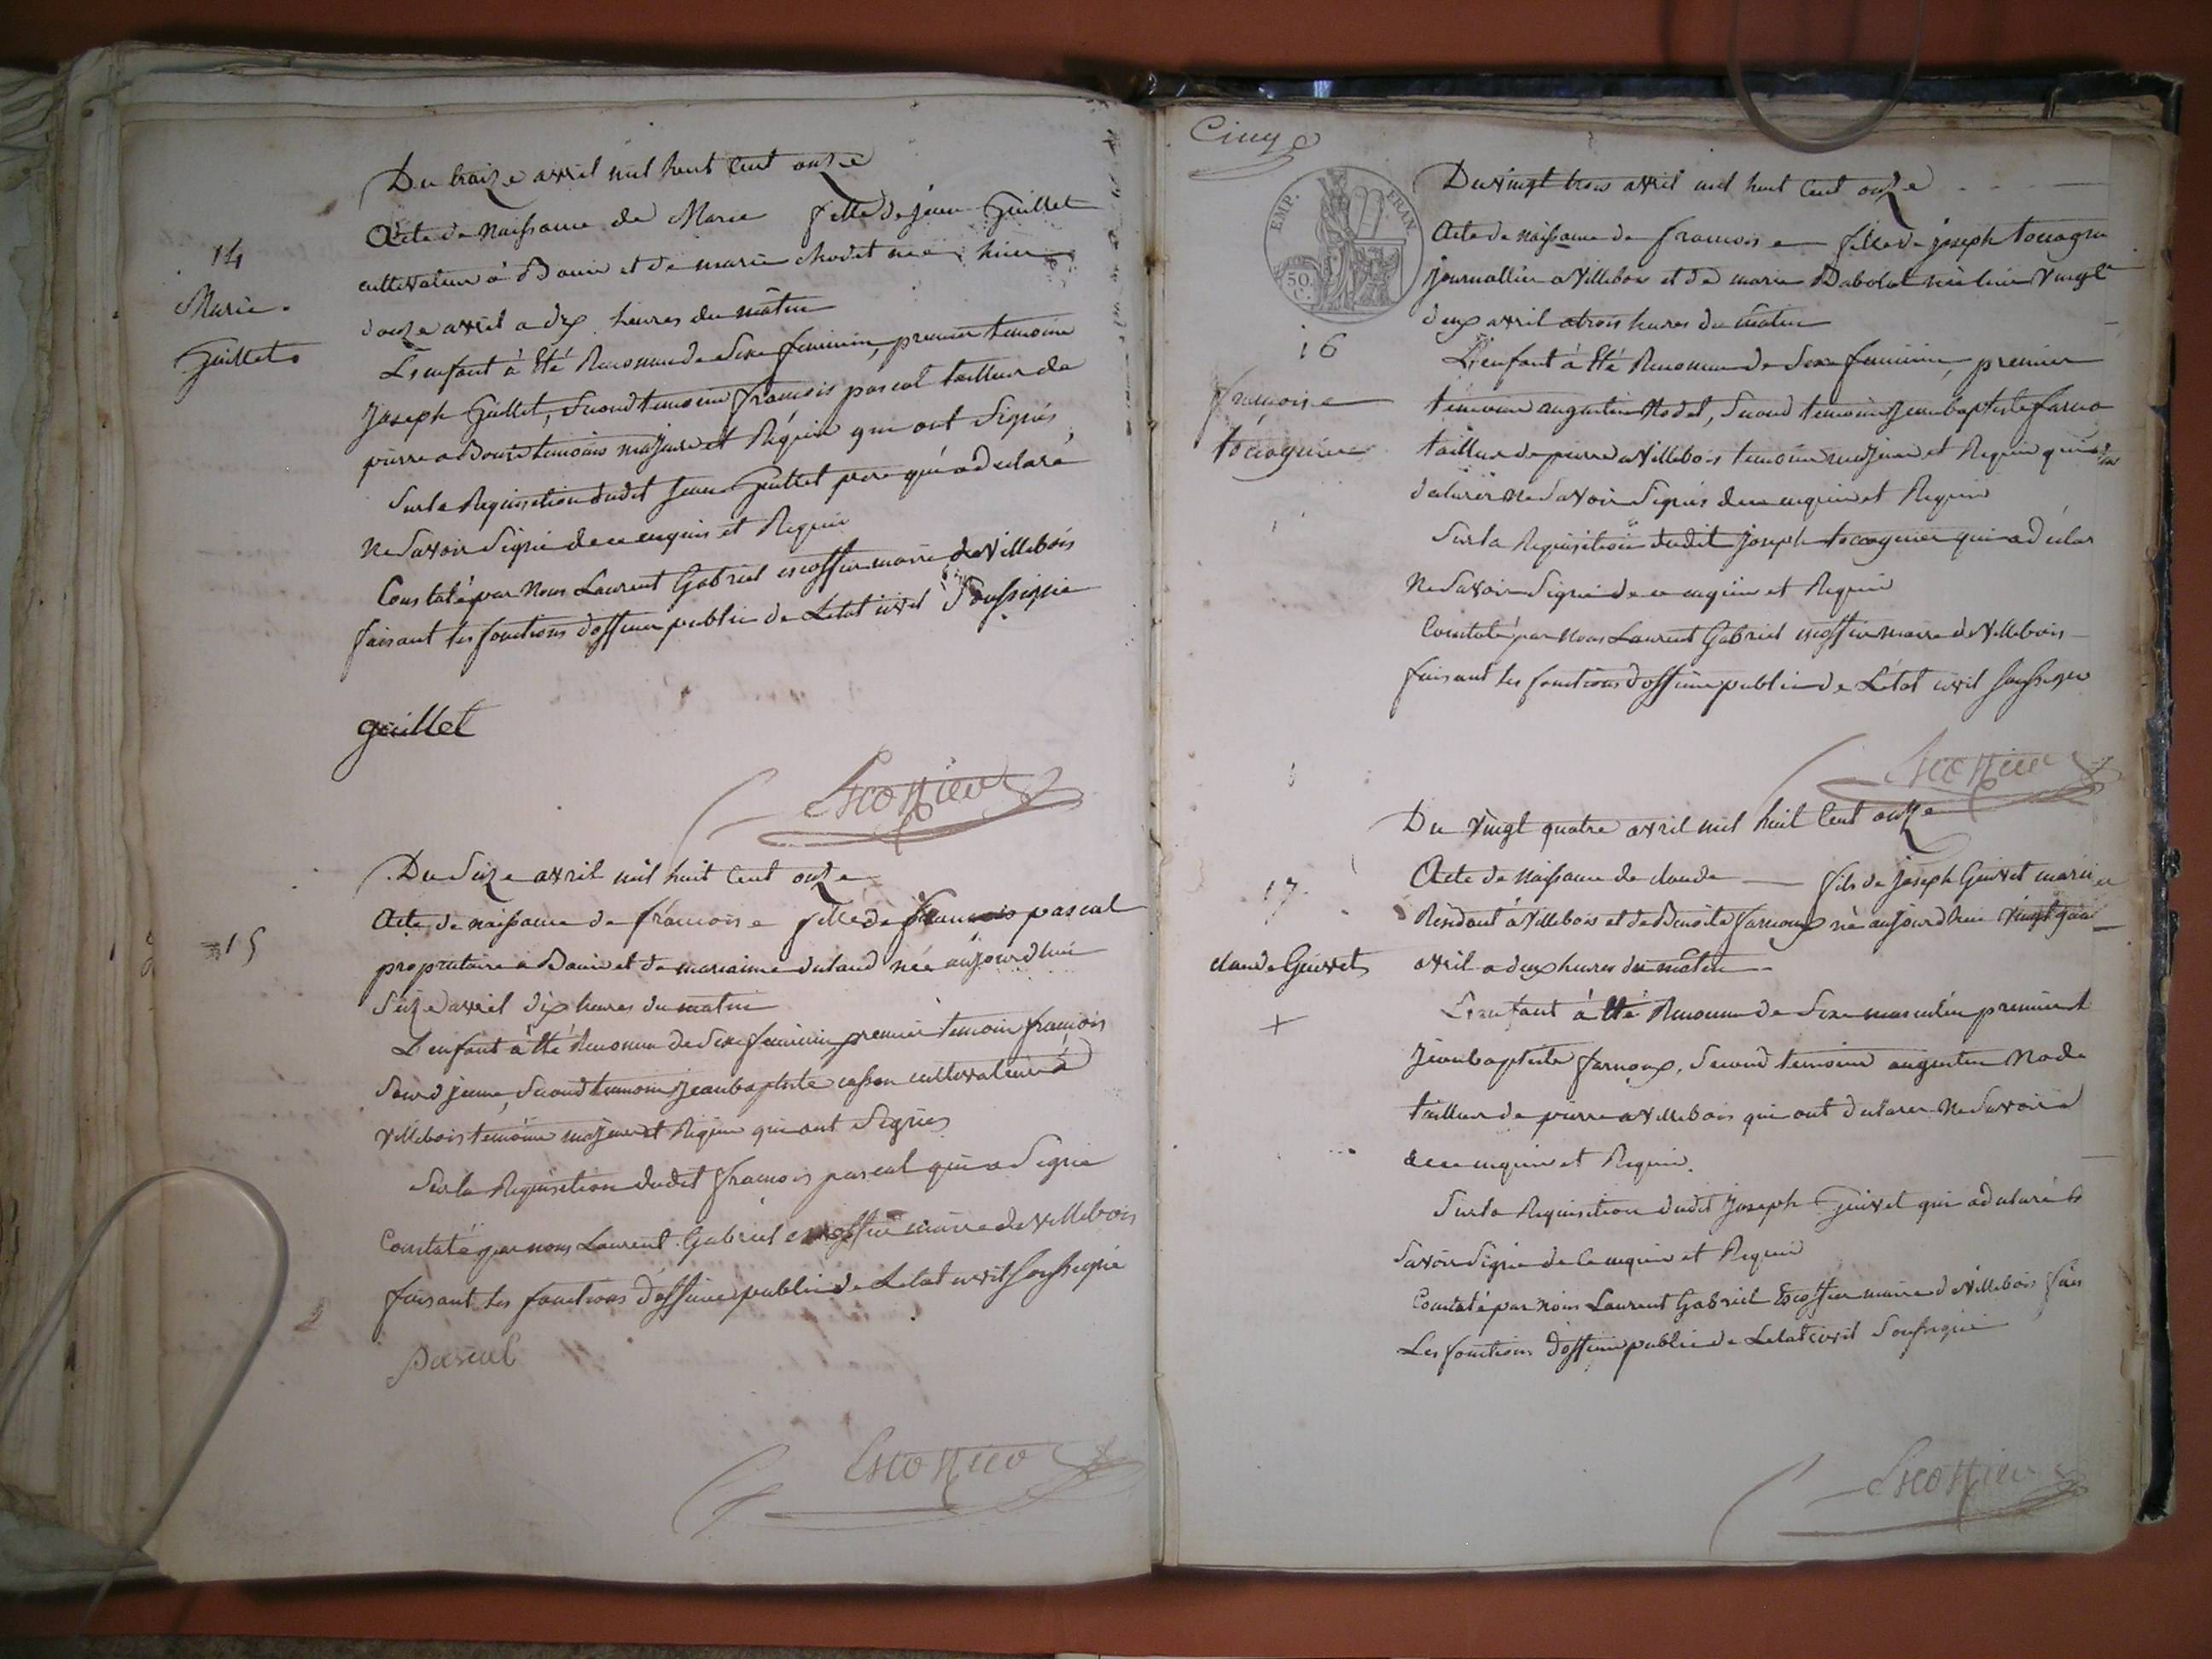 14
Marie
Guillet
Du traize avril mil huit Cent onze
Acte de Naissance de Marie fille de jean Guillet
cultivateur à Bouis et de marie chodet née hier
douze avril a dix heures du matin
L'enfant à été Reconnu de Sexe feminin, premier temoin
Joseph Guillet, Second temoin françois pascal tailleur de
pierre a Bouis temoins majeurs et Réquis qui ont Signés
Sur la Requisition dudit Jean Guillet pere qui a declaré
Ne Savoir Signé de ce enquis et Requis
Constaté par Nous Laurent Gabriel escoffier maire de Villebois
faisant les fonctions d'officier public de L'etat civil Soussigné
guillet
Escoffier
15
Du Seize avril mil huit Cent onze
Acte de naissance de françoise fille de françois pascal
propriétaire a Bouis et de mariaime née aujourdhui
Seize avril dix heures du matin
L'enfant à été Reconnu de Sexe feminin, premier temoin françois
jeune, Second temoin jeanbaptiste cultivateur à
Villebois temoins majeurs et Réquis qui ont Signés
Sur la Requisition dudit françois pascal qui a Signé
Constaté par nous Laurent Gabriel escoffier maire de Villebois
faisant les fonctions d'officier public de L'etat civil Soussigné
pascal
Escoffier
Cinq
EMP. FRAN.
50 C.
16
françoise
Du Vingt trois avril mil huit Cent onze
Acte de naissance de françoise fille de joseph
journallier a Villebois et de marie née hier Vingt
deux avril a trois heures du matin
L'enfant à été Reconnu de Sexe feminin, premier
temoin augustin Nodet, Second temoin Jeanbaptiste
tailleur de pierre a Villebois temoins majeurs et Requis qui
declarér Ne Savoir Signés de ce enquis et Requis
Sur la Requisition dudit Joseph qui a declar
Ne Savoir Signé de ce enquis et Requis
Constaté par Nous Laurent Gabriel escoffier maire de Villebois
faisant les fonctions d'officier public de L'état civil Soussigné
Escoffier
17
claude Guivet
+
Du Vingt quatre avril mil huit Cent onze
Acte de Naissance de claude fils de Joseph Guivet
Résidant à Villebois et de Benoite farnoux né aujourdhui vingt
avril a deux heures du matin
L'enfant à été Reconnu de Sexe masculin premier t
Jeanbaptiste farnoux, Second temoin augustin Node
tailleur de pierre a Villebois qui ont declarer Ne Savoir
de ce enquis et Requis.
Sur la Requisition dudit Joseph Guivet qui a declaré
Savoir Signé de Ce enquis et Requis
Constaté par Nous Laurent Gabriel Escoffier maire de Villebois fais
Les fonctions d'officier public de L'etat civil Soussigné
Escoffier